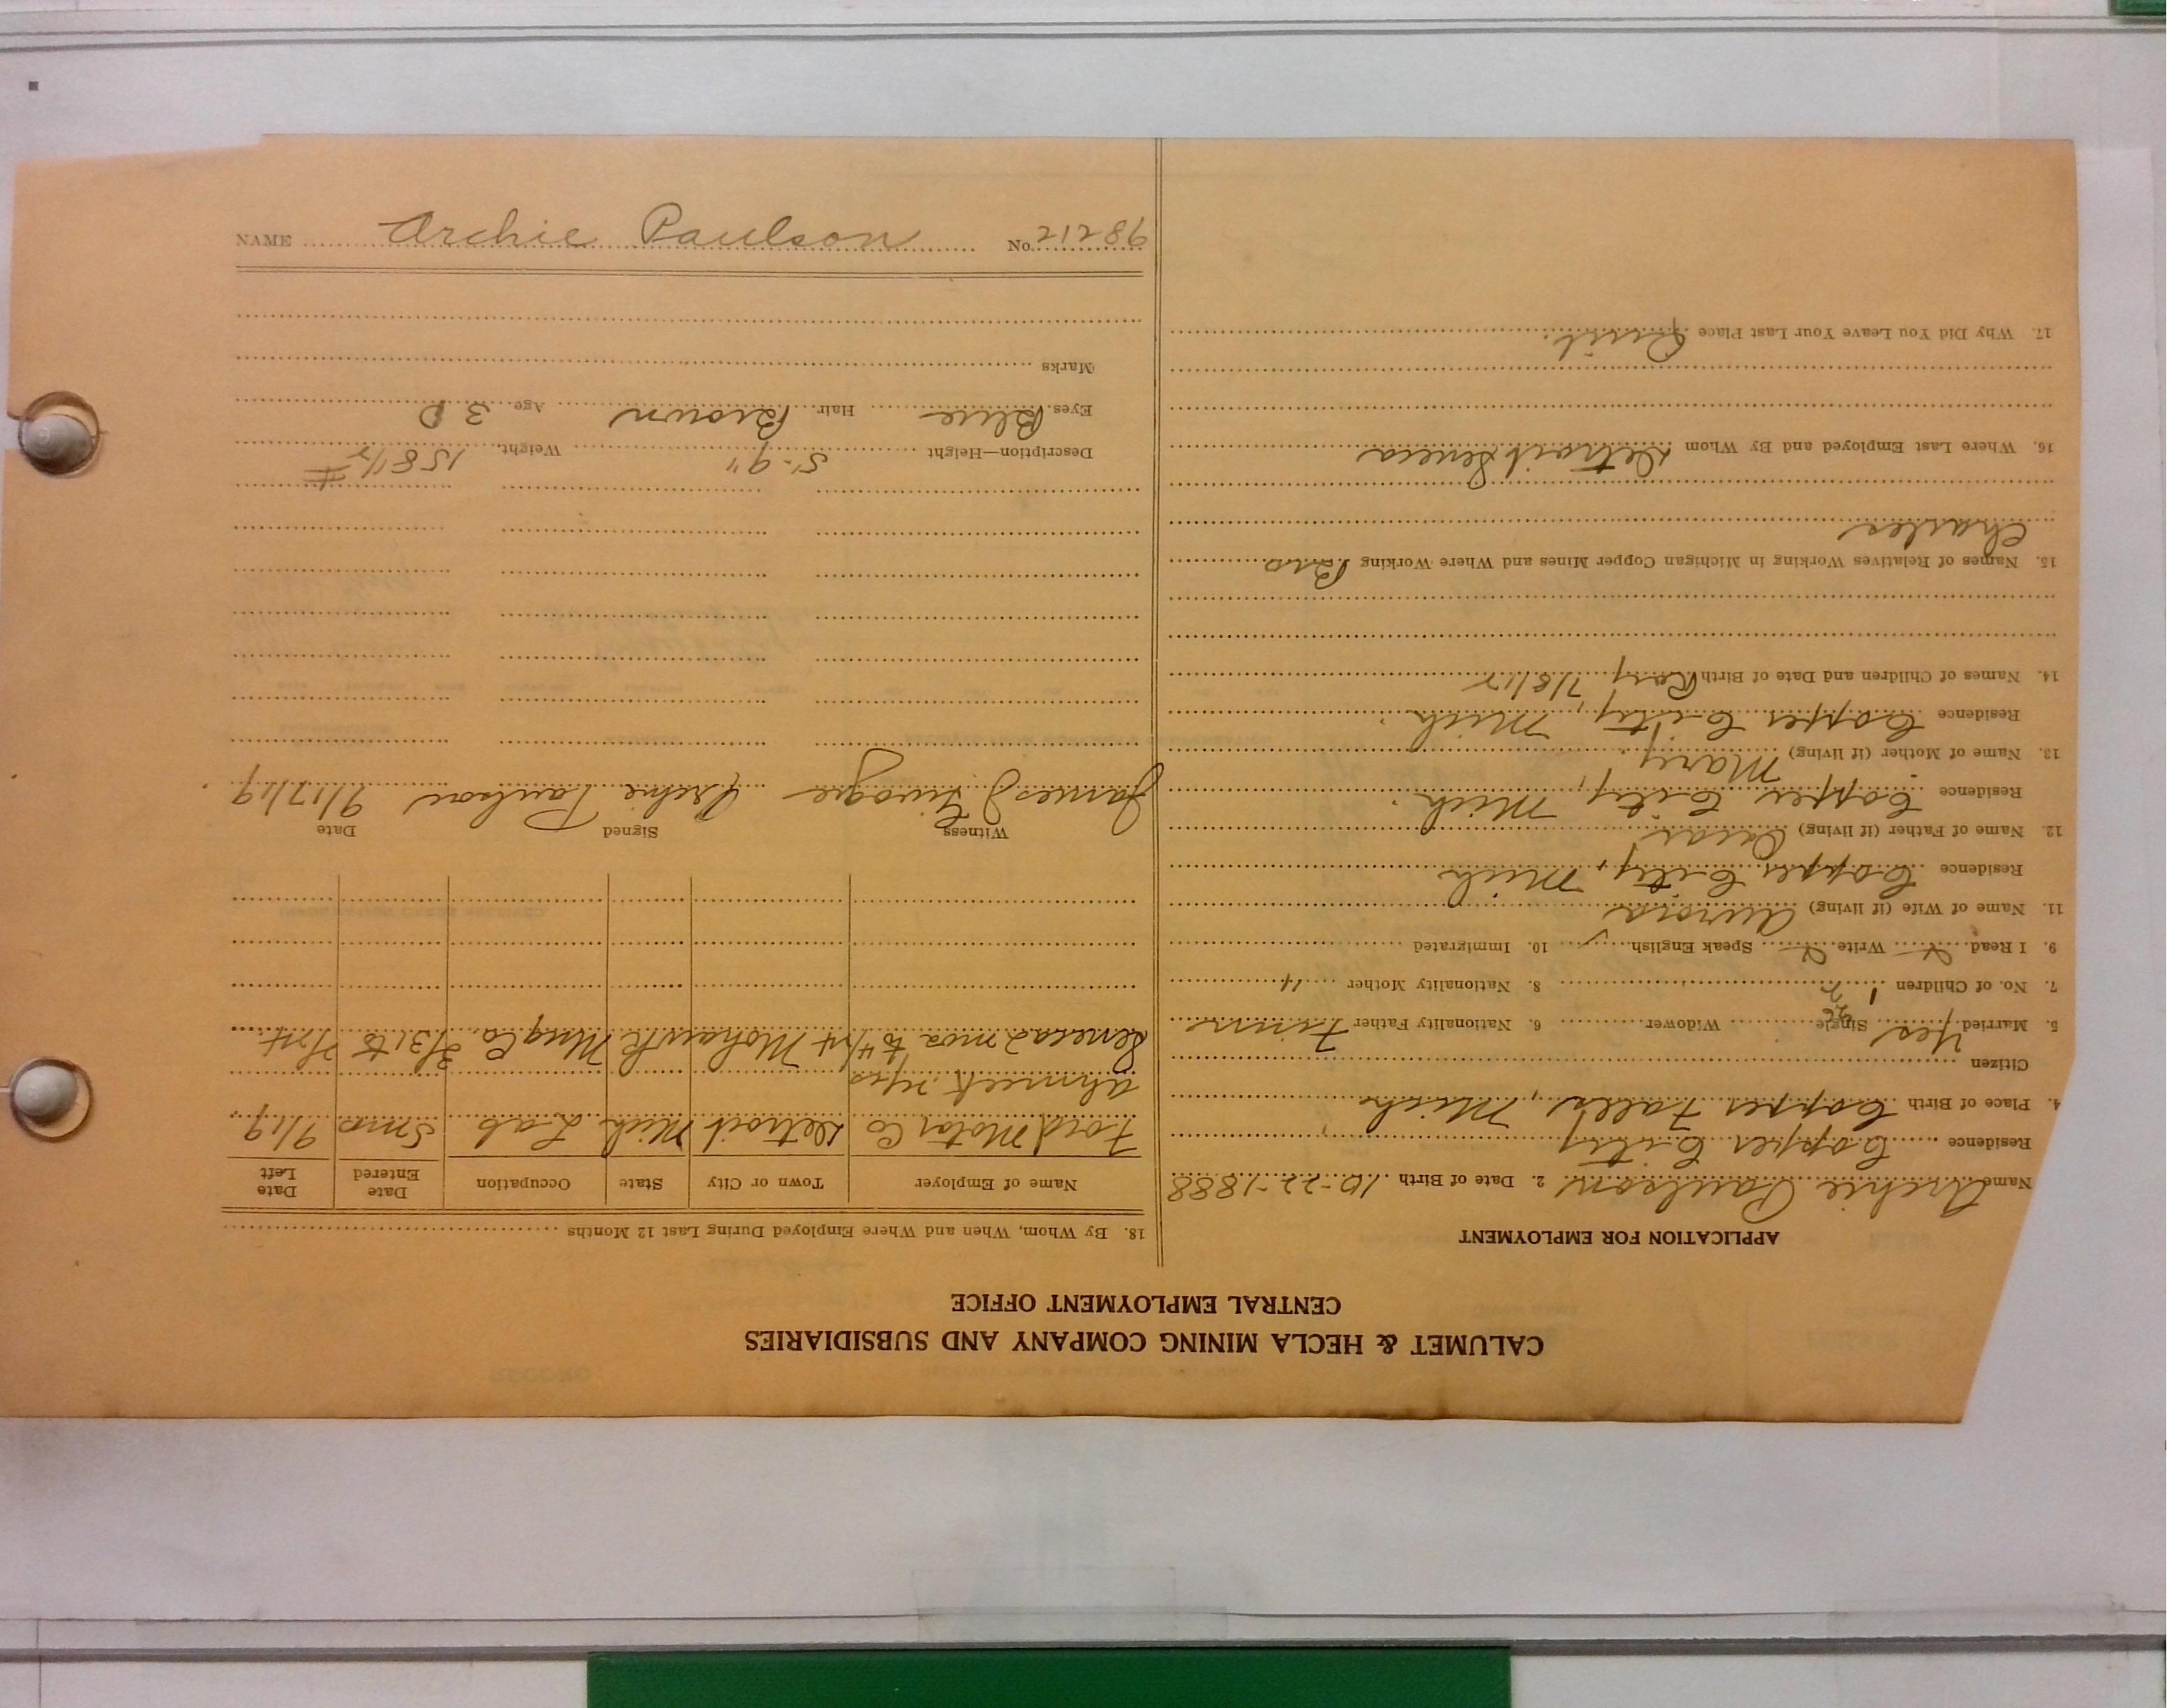 CALUMET & HECLA MINING COMPANY AND SUBSIDIARIES
CENTRAL EMPLOYMENT OFFICE
APPLICATION FOR EMPLOYMENT
Name Archie Paulson 2. Date of Birth 10-22-1888
Residence Copper City
4. Place of Birth Copper Falls, Mich
Citizen
5. Married Yes Single Widower 6. Nationality Father Finn
7. No. of Children 1 8. Nationality Mother "
9. I Read Write Speak English 10. Immigrated
11. Name of Wife (if living) Aurora
Residence Copper City, Mich
12. Name of Father (if living) Oscar
Residence Copper City, Mich.
13. Name of Mother (if living) Mary
Residence Copper City, Mich.
14. Names of Children and Date of Birth Roy 7/8/12
15. Names of Relatives Working in Michigan Copper Mines and Where Working Bro
Charles
16. Where Last Employed and By Whom Detroit Seneca
17. Why Did You Leave Your Last Place Quit.
18. By Whom, When and Where Employed During Last 12 Months
Name of Employer Town or City State Occupation Date Entered Date Left
Ford Motor Co Detroit Mich Lab. 5 mos 9/19
Ahmeek
Seneca 2 mos to Mohawk Mng Co. 3/31 to
Witness Signed Date
James J Archie Paulson 9/17/19
Description—Height 5'-9" Weight 158 1/2 #
Eyes Blue Hair Brown Age 30
Marks
NAME Archie Paulson No. 21286